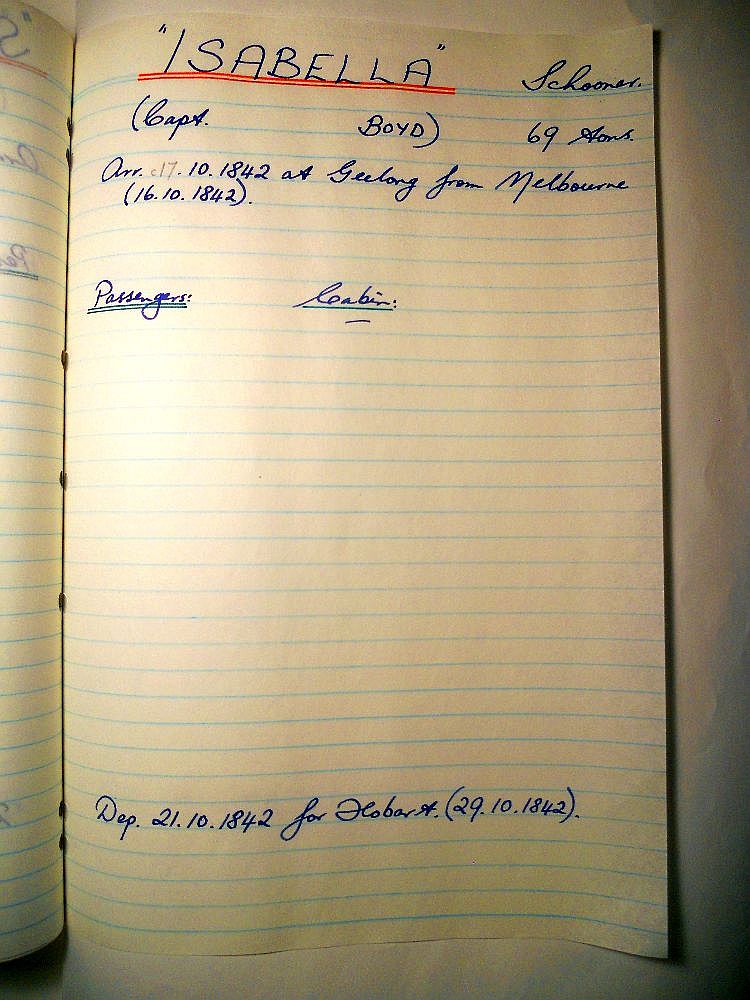 "ISABELLA" Schooner.
(Capt. BOYD) 69 tons.
Arr. c17.10.1842 at Geelong from Melbourne
(16.10.1842).
Passengers: Cabin:
Dep. 21.10.1842 for Hobart. (29.10.1842).